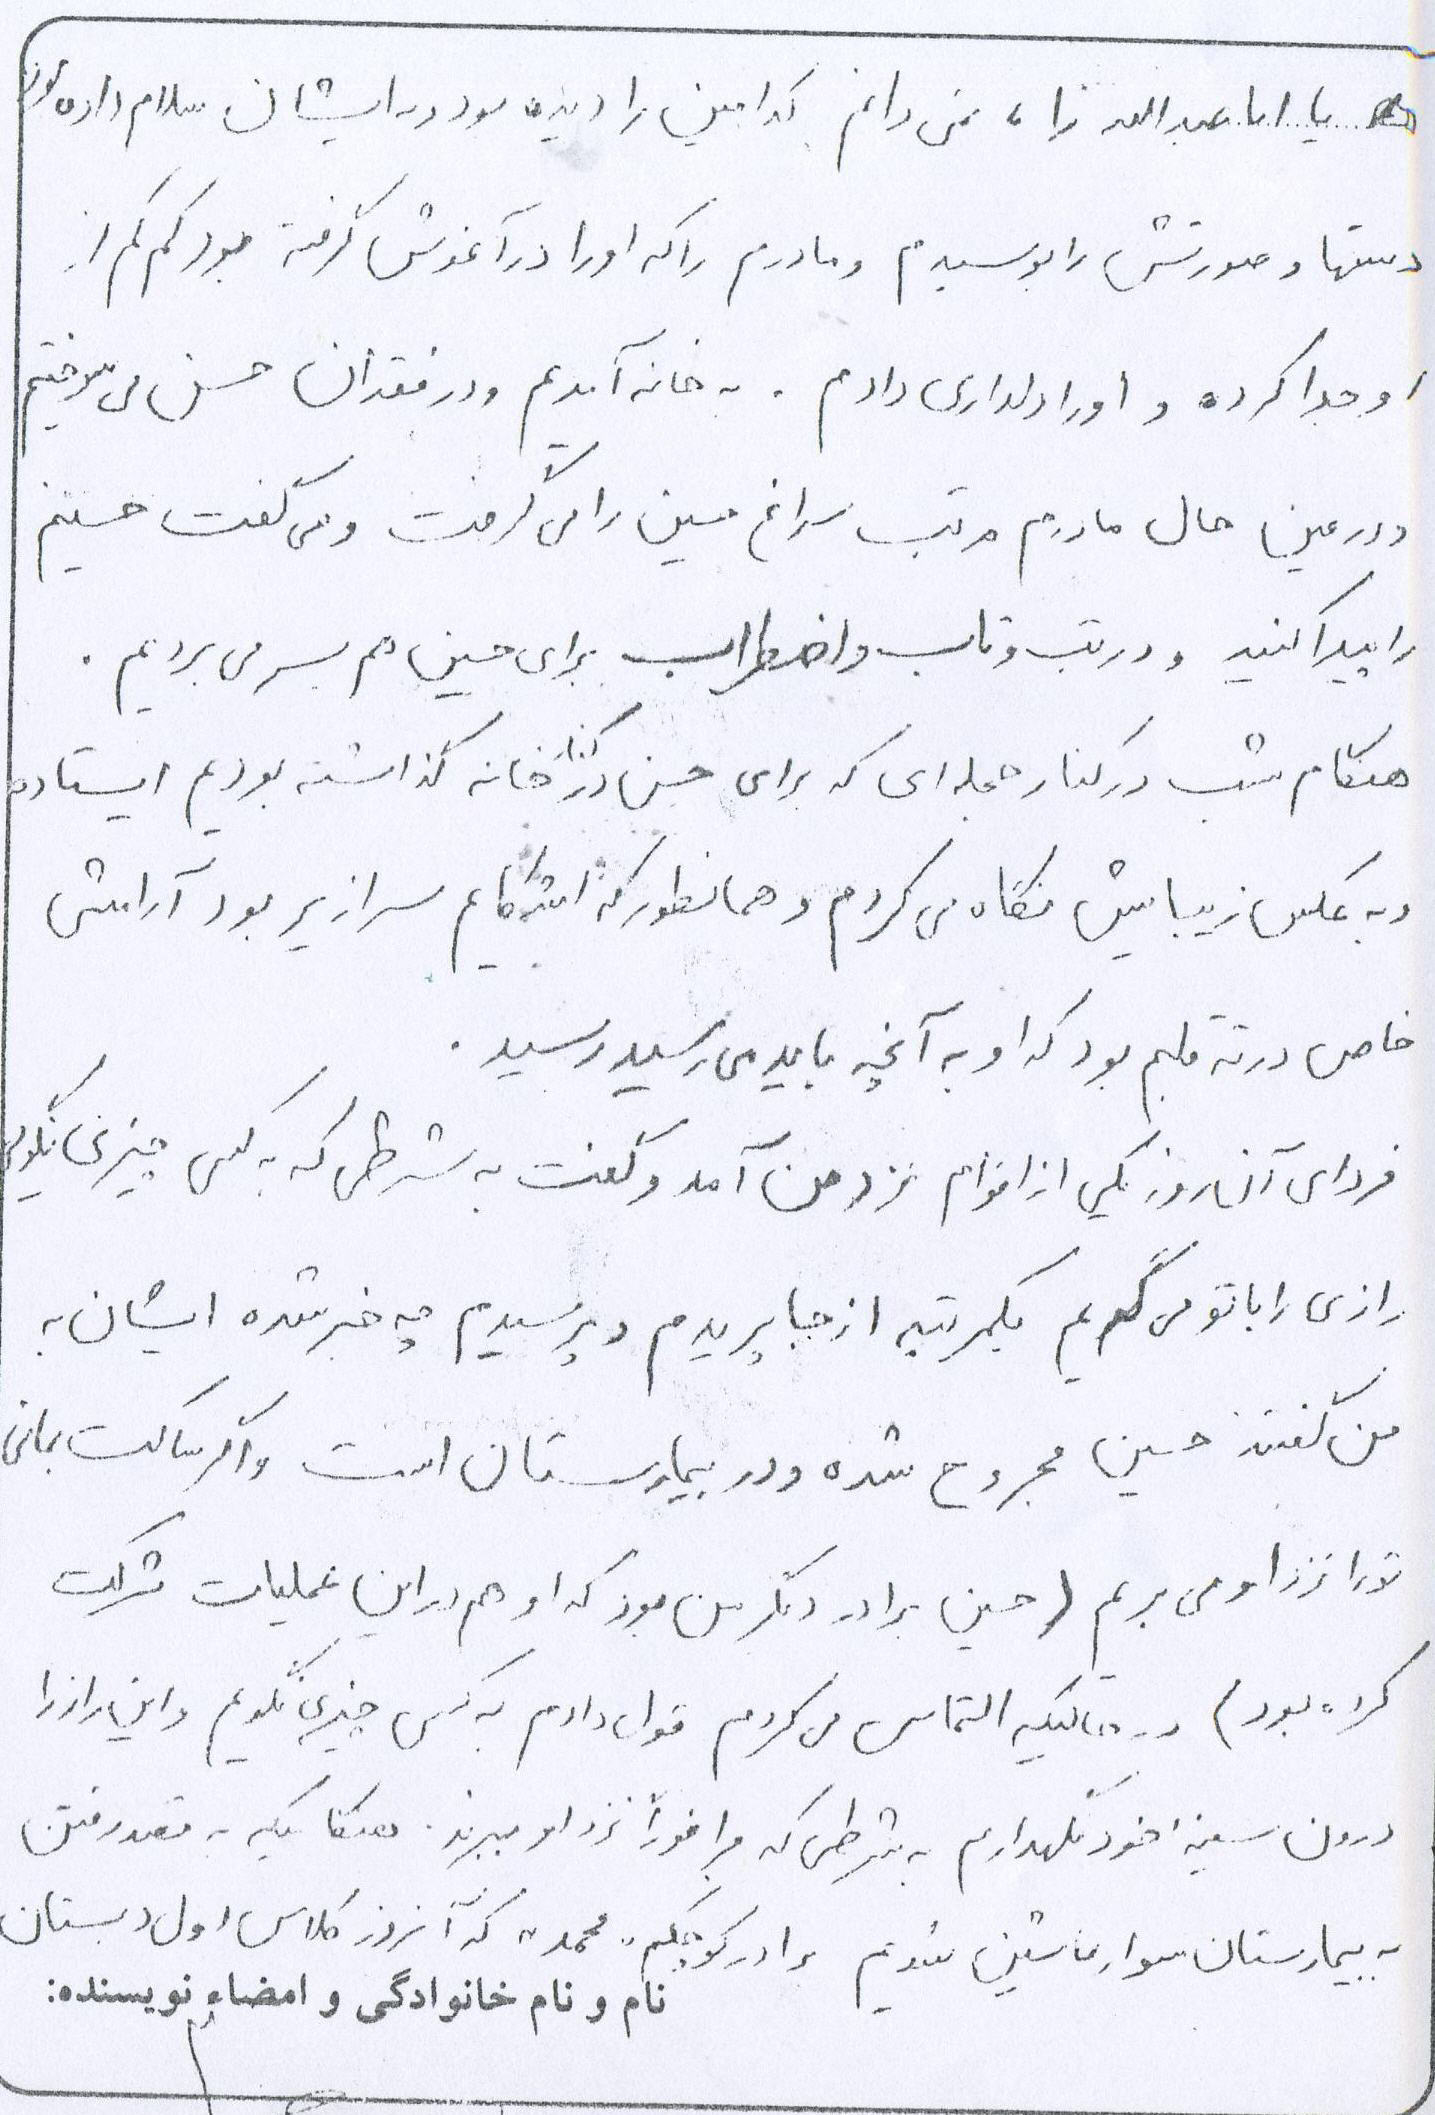 یا ابا عبدالله را، نمی دانم کدامین را دیده بود و به ایشان سلام داده بود
دستها و صورتش را بوسیدم و مادرم را که او را در آغوش گرفته بود کم کم از
او جدا کرده و او را دلداری دادم . به خانه آمدیم و در فقدان حسن می سوختیم
و در عین حال مادرم مرتب سراغ حسین را می گرفت و می گفت حسینم
را پیدا کنید و در تب و تاب و اضطراب برای حسین هم بسر می بردیم .
هنگام شب در کنار حجله ای که برای حسن در کنار خانه گذاشته بودیم ایستاده
و به عکس زیبایش نگاه می کردم و همانطور که اشکهایم سرازیر بود آرامش
خاصی در ته قلبم بود که او به آنچه باید می رسید رسید .
فردای آنروز یکی از اقوام نزد من آمد و گفت به شرطی که به کسی چیزی نگویی
رازی را با تو می گویم یکمرتبه از جا پریدم و پرسیدم چه خبر شده ایشان به
من گفتند حسین مجروح شده و در بیمارستان است و اگر ساکت بمانی
تو را نزد او می بریم (حسین برادر دیگر من بود که او هم در این عملیات شرکت
کرده بود) در حالیکه التماس می کردم قول دادم به کسی چیزی نگویم و این راز را
درون سینه خود نگهدارم به شرطی که مرا فوراً نزد او ببرند . هنگامیکه به قصد رفتن
به بیمارستان سوار ماشین شدیم برادر کوچکم "محمد" که آنروز کلاس اول دبستان
نام و نام خانوادگی و امضاء نویسنده: